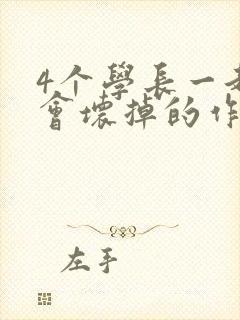 4个學長一
會壞掉的作
左手